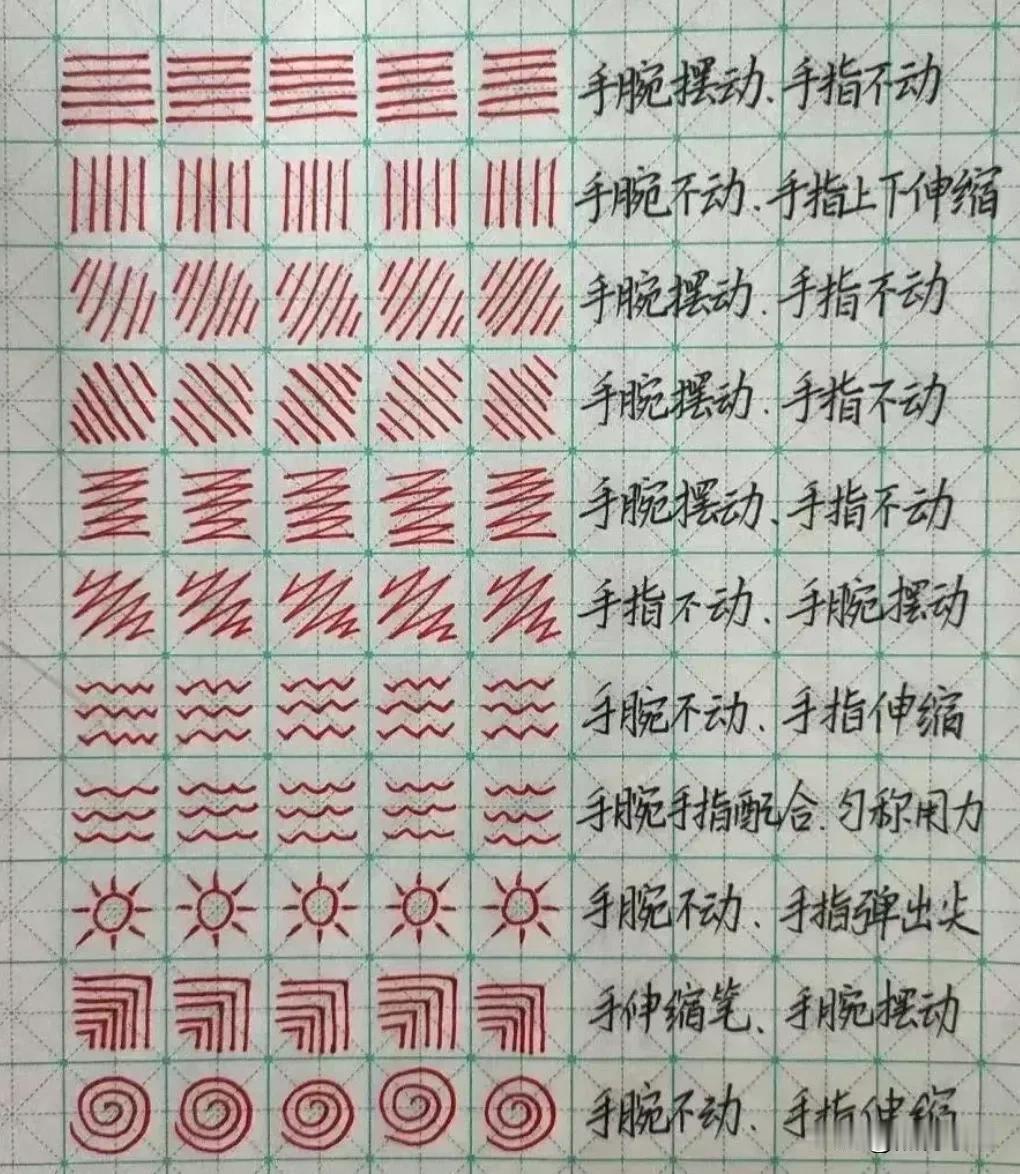 手腕摆动、手指不动
手腕不动、手指上下伸缩
手腕摆动、手指不动
手腕摆动、手指不动
手腕摆动、手指不动
手指不动、手腕摆动
手腕不动、手指伸缩
手腕手指配合、匀称用力
手腕不动、手指弹出尖
手伸缩笔、手腕摆动
手腕不动、手指伸缩